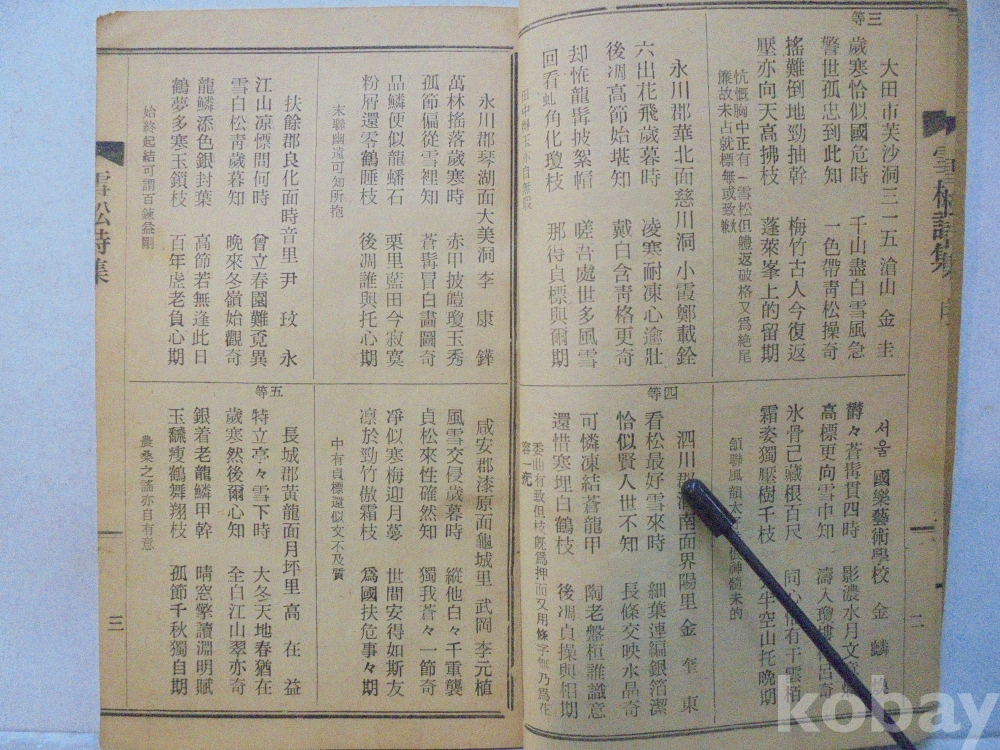 雪松詩集
二
三等
大田市芙沙洞三一五 滄山 金圭
歲寒恰似國危時 千山盡白雪風急
警世孤忠到此知 一色帶靑松操奇
搖難倒地勁抽幹 梅竹古人今復返
壓亦向天高拂枝 蓬萊峯上的留期
忼慨胸中正有一雪松但軆返破格又爲絶尾
廉故未占就標無或致歉
永川郡華北面慈川洞 小霞鄭載銓
六出花飛歲暮時 凌寒耐凍心逾壯
後凋高節始堪知 戴白含靑格更奇
却恠龍髯披絮帽 嗟吾處世多風雪
回看虬角化瓊枝 那待貞標與爾期
서울 國樂藝術學校 金麟
欝々蒼髯貫四時 影濃水月文
高標更向雪中知 濤入瓊樓
氷骨己藏根百尺 同心惟有干雲栢
霜姿獨壓樹千枝 半空山托晩期
頷聯風韻太
四等
泗川郡 南面界陽里 金奎東
看松最好雪來時 細葉連編銀箔潔
恰似賢人世不知 長條交映水晶奇
可憐凍結蒼龍甲 陶老盤桓誰識意
還惜寒埋白鶴枝 後凋貞操與相期
委曲有致但枝旣爲押而又用條字無乃爲花
容一疵
永川郡琴湖面大美洞 李康鏵
萬林搖落歲寒時 赤甲披皚瓊玉秀
孤節偏從雪裡知 蒼髯冒白畵圖奇
品鱗便似龍蟠石 栗里藍田今寂寞
粉屑還零鶴睡枝 後凋誰與托心期
末聯幽遠可知所抱
扶餘郡良化面時音里 尹玟永
江山凉標問何時 曾立春園難覔異
雪白松靑歲暮知 晩來冬嶺始觀奇
龍鱗添色銀封葉 高節若無逢此日
鶴夢多寒玉鎖枝 百年虛老負心期
始終起結可謂百鍊益剛
咸安郡漆原面龜城里 武岡 李元植
風雪交侵歲暮時 縱他白々千重襲
貞松來性確然知 獨我蒼々一節奇
凈似寒梅迎月蕚 世間安得如斯友
凛於勁竹傲霜枝 爲國扶危事々期
中有貞標還似文不及質
五等
長城郡黃龍面月坪里 高在益
特立亭々雪下時 大冬天地春猶在
歲寒然後爾心知 全白江山翠亦奇
銀着老龍鱗甲幹 晴窓擎讀淵明賦
玉毿瘦鶴舞翔枝 孤節千秋獨自期
農桑之謠亦自有意
雪松詩集
三
kobay